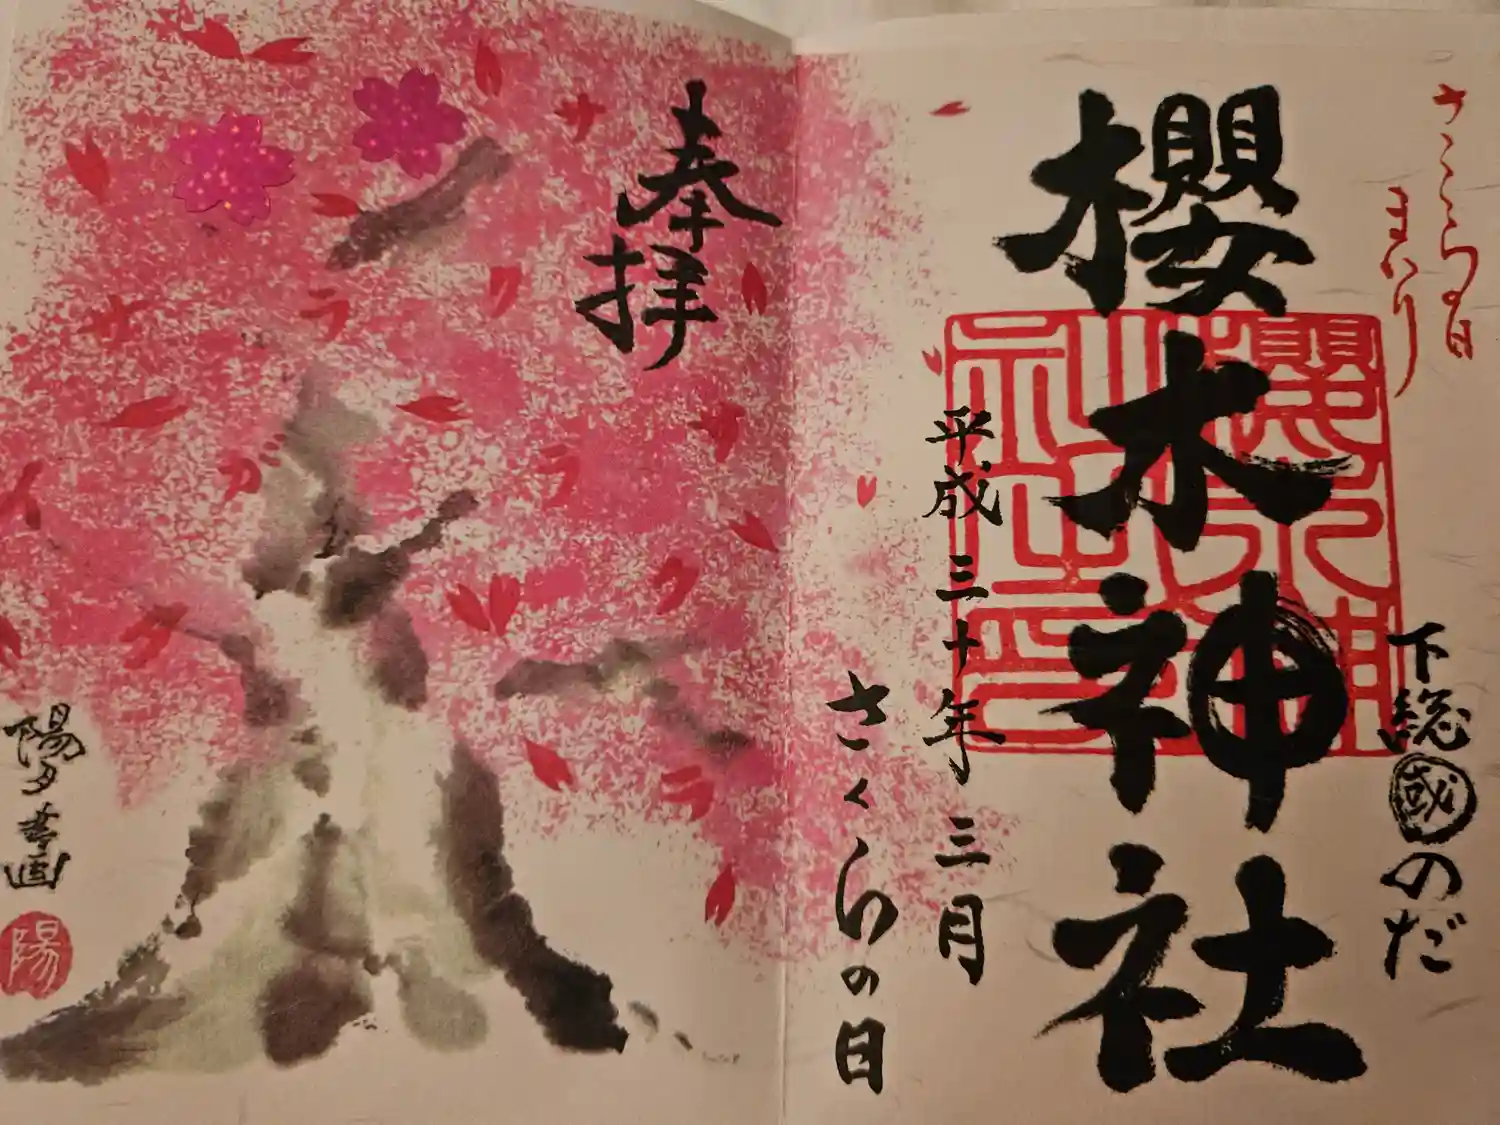 さくらの日
まいり
下総國のだ
櫻木神社
櫻木神社之印
平成三十年三月
さくらの日
奉拝
サクラ
サクラ
サクラ
サガ
イタ
陽夕華画
陽